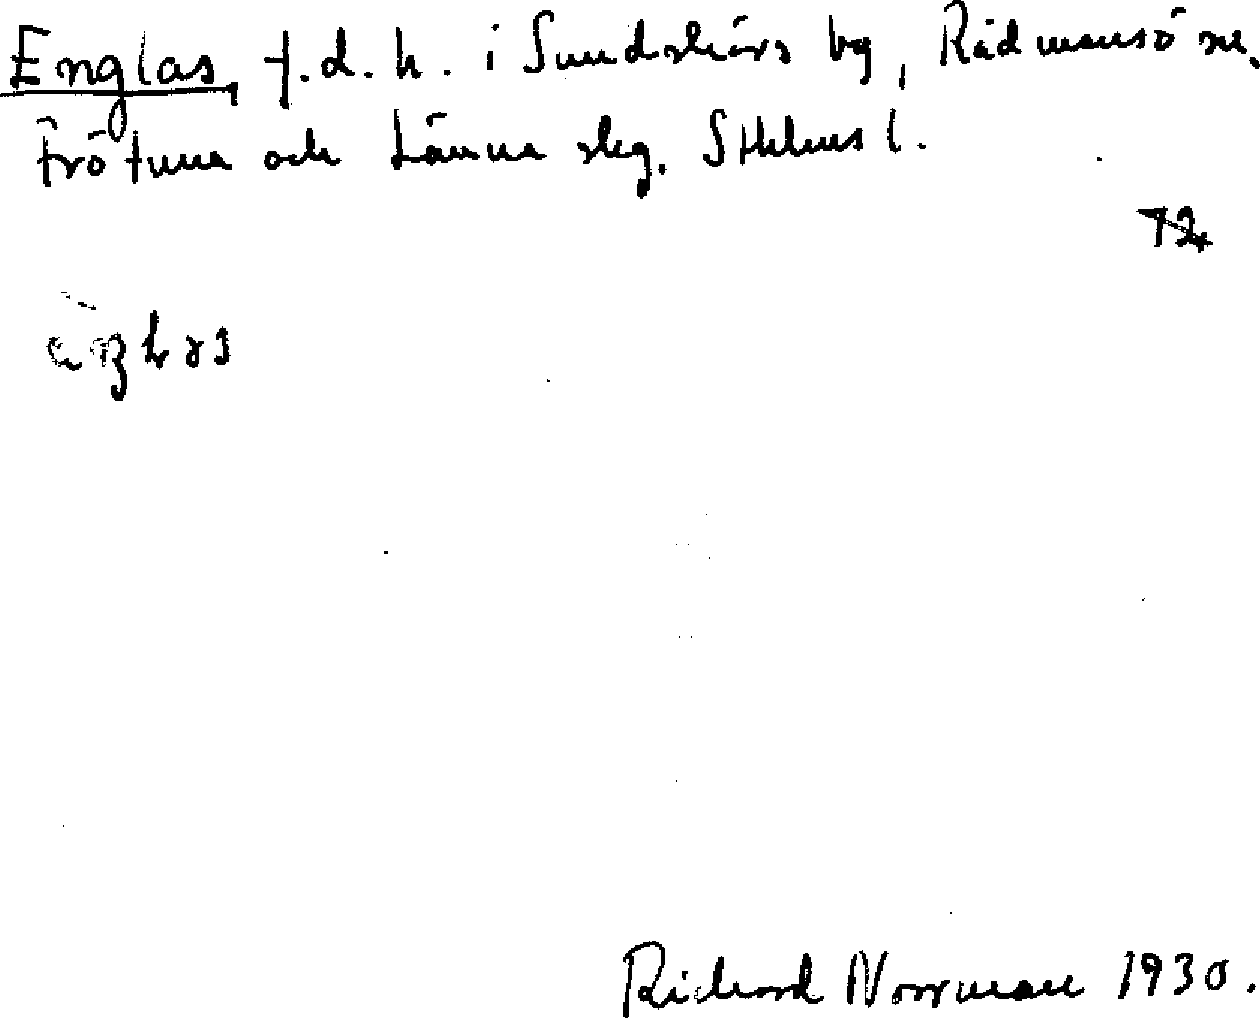 Englas, f.d. h. i Sundskärs by, Rådmansö sn.
Frötuna och Länna skg. Sthlms l.
72
Richard Norrman 1930.